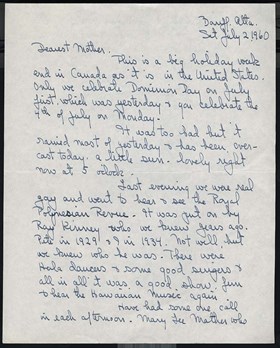 Banff, Alta.
Sat July 2 1960
Dearest Mother.
This is a big holiday week
end in Canada as it is in the United States.
Only we celebrate Dominion Day on July
first, which was yesterday & you celebrate the
4th of July on Monday.
It was too bad but it
rained most of yesterday & has been over-
cast today - a little sun - lovely right
now at 5 o'clock.
Last evening we were real
gay and went to hear & see the Royal
Polynesian Revue. It was put on by
Ray Kinney who we knew years ago.
Pete in 1929 & I in 1934. Not well, but
we knew who he was. There were
Hula dancers & some good singers &
all in all it was a good show. Fun
to hear the Hawaiian music again.
Have had some one call
in each afternoon. Mary Lee Mather who